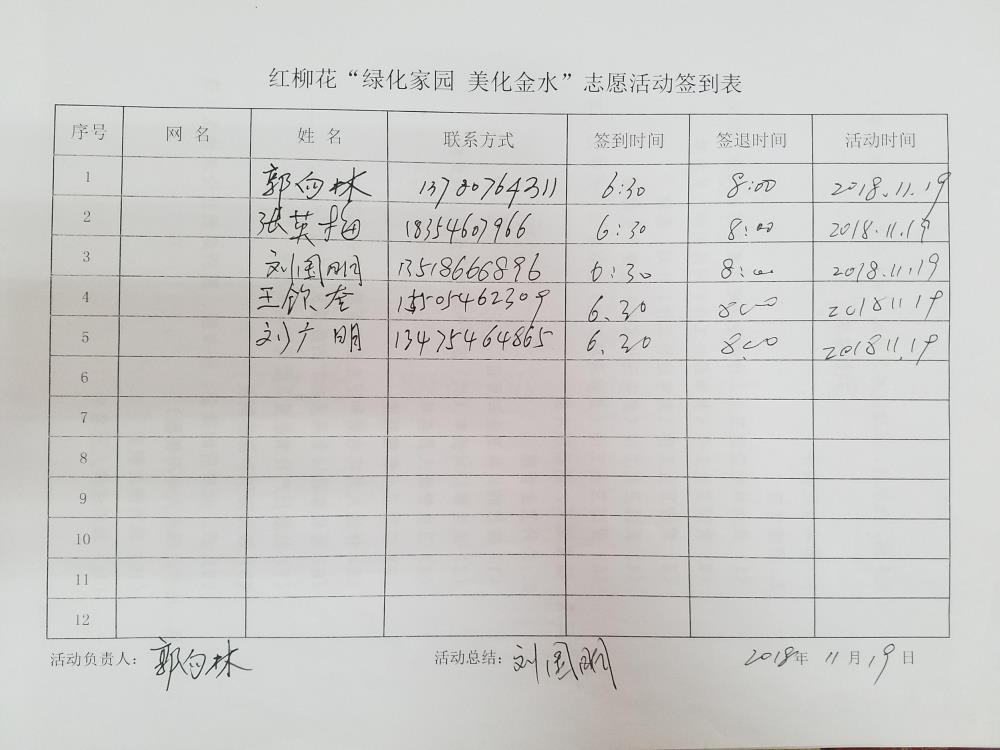 红柳花“绿化家园 美化金水”志愿活动签到表
序号 网 名 姓 名 联系方式 签到时间 签退时间 活动时间
1 郭向林 13780764311 6:30 8:00 2018.11.19
2 张英梅 18354607966 6:30 8:00 2018.11.19
3 刘国明 13518666896 6:30 8:00 2018.11.19
4 王钦奎 15505462309 6.30 800 20181119
5 刘广明 13475464865 6.30 8.00 201811.19
6
7
8
9
10
11
12
活动负责人: 郭向林 活动总结: 刘国明 2018年 11月19日